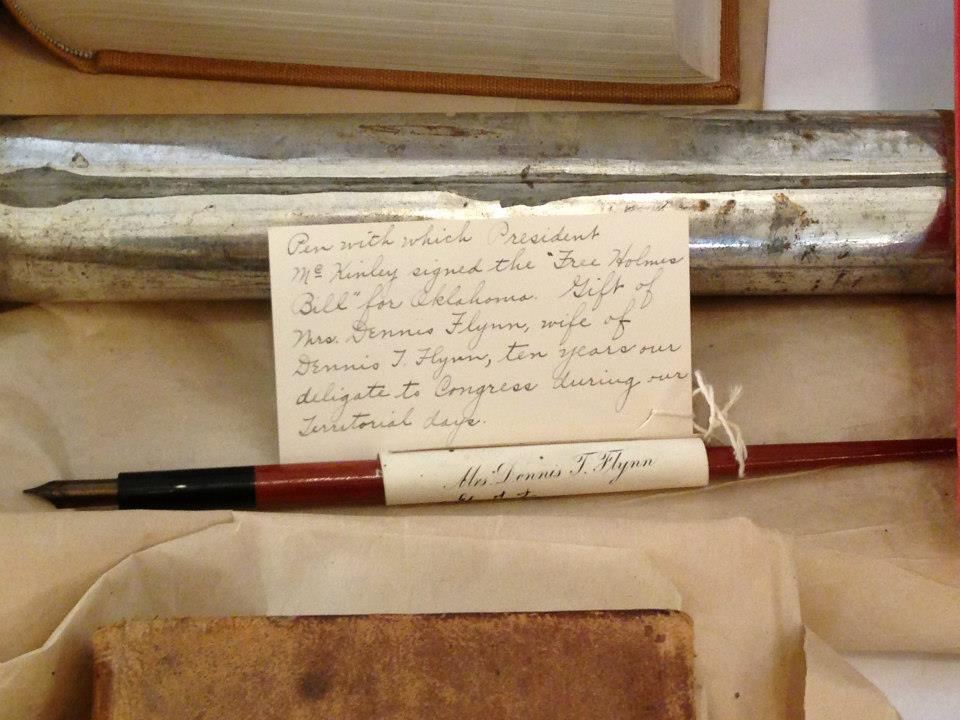 Pen with which President
Mc Kinley signed the "Free Holmes
Bill" for Oklahoma. Gift of
Mrs. Dennis Flynn, wife of
Dennis T. Flynn, ten years our
deligate to Congress during our
Territorial days.
Mrs. Dennis T. Flynn